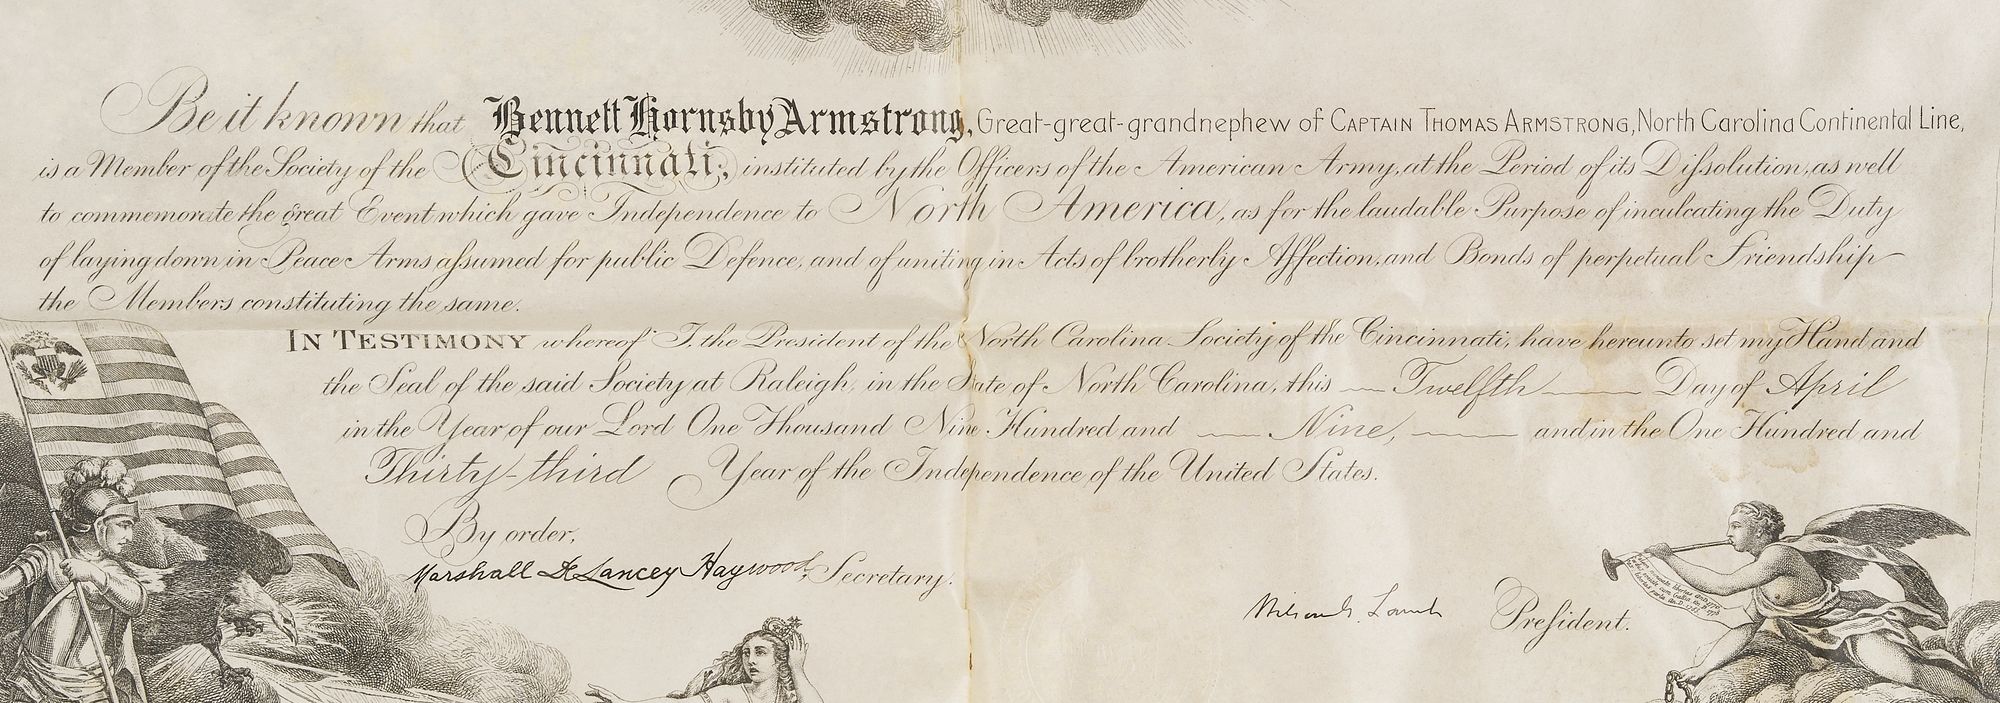 Be it known that Bennett Hornsby Armstrong, Great-great-grandnephew of Captain Thomas Armstrong, North Carolina Continental Line,
is a Member of the Society of the Cincinnati; instituted by the Officers of the American Army, at the Period of its Dissolution, as well
to commemorate the great Event which gave Independence to North America, as for the laudable Purpose of inculcating the Duty
of laying down in Peace Arms assumed for public Defence, and of uniting in Acts of brotherly Affection, and Bonds of perpetual Friendship
the Members constituting the same.
In Testimony whereof I, the President of the North Carolina Society of the Cincinnati, have hereunto set my Hand and
the Seal of the said Society at Raleigh, in the State of North Carolina, this Twelfth Day of April
in the Year of our Lord One Thousand Nine Hundred and Nine, and in the One Hundred and
Thirty-third Year of the Independence of the United States.
By order,
Marshall De Lancey Haywood, Secretary.
Wilson G. Lamb President.